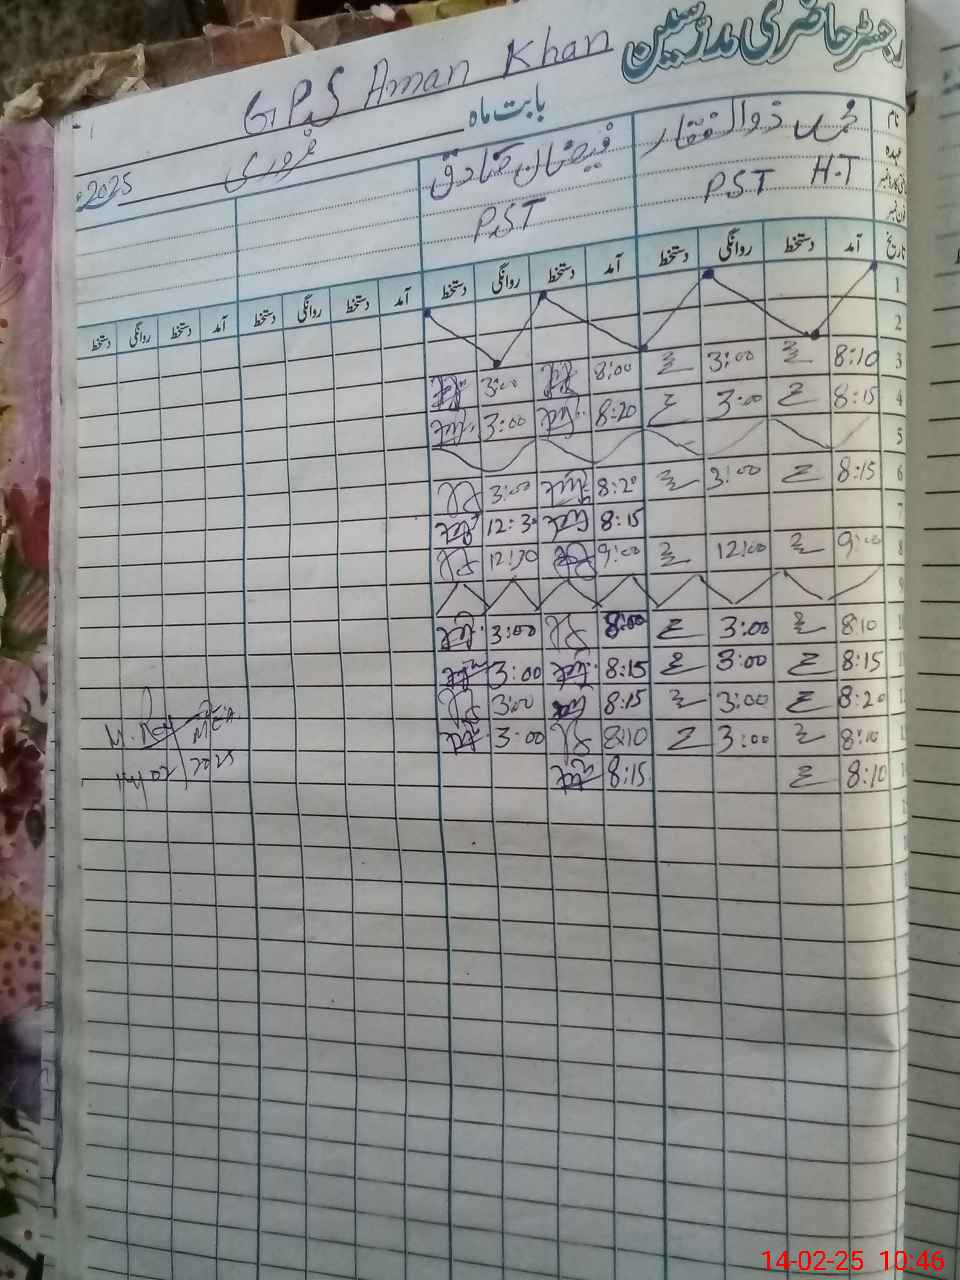 رجسٹر حاضری مدرسین
GPS Aman Khan
بابت ماہ فروری 2025ء
نام محمد ذوالفقار فیضان صادق
عہدہ H.T PST PST
تاریخ آمد دستخط روانگی دستخط آمد دستخط روانگی دستخط آمد دستخط روانگی دستخط آمد دستخط روانگی دستخط
1
2
3 8:10 3:00 8:00 3:00
4 8:15 3:00 8:20 3:00
5
6 8:15 3:00 8:20 3:00
7 8:15 12:30
8 9:00 12:00 9:00 12:30
9
8:10 3:00 8:00 3:00
8:15 3:00 8:15 3:00
8:20 3:00 8:15 3:00
8:10 3:00 8:10 3:00
8:10 8:15
MEA
14/02/2025
14-02-25 10:46